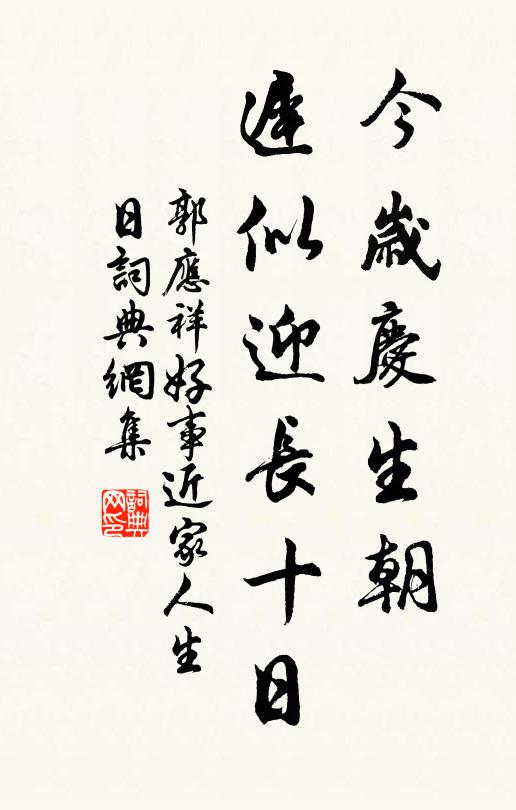 今歲慶生朝
遲似迎長十日
郭應祥好事近家人生
日詞典網集
詞典网印